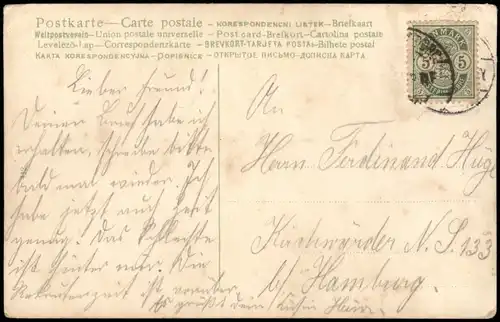 Postkarte — Carte postale — KORESPONDENCNI LISTEK — Briefkaart
Weltpostverein — Union postale universelle — Postcard — Brefkort — Cartolina postale
Levelező-Lap — Correspondenzkarte — BREVKORT — TARJETA POSTAL — Bilhete postal
KARTA KORESPONDENCYJNA — DOPISNICE — ОТКРЫТОЕ ПИСЬМО — ДОПИСНА КАРТА
5 5
Lieber Freund!
Deinen habe ich
erhalten, schreibe bitte
bald mal wieder. Ich
habe jetzt auch Zeit
genug. Das Schlechte
ist hinter mir. Die
Rekrutenzeit ist vorüber.
Es grüßt dein
An
Herrn Ferdinand
Kirchwärder N. S. 133
b/ Hamburg.